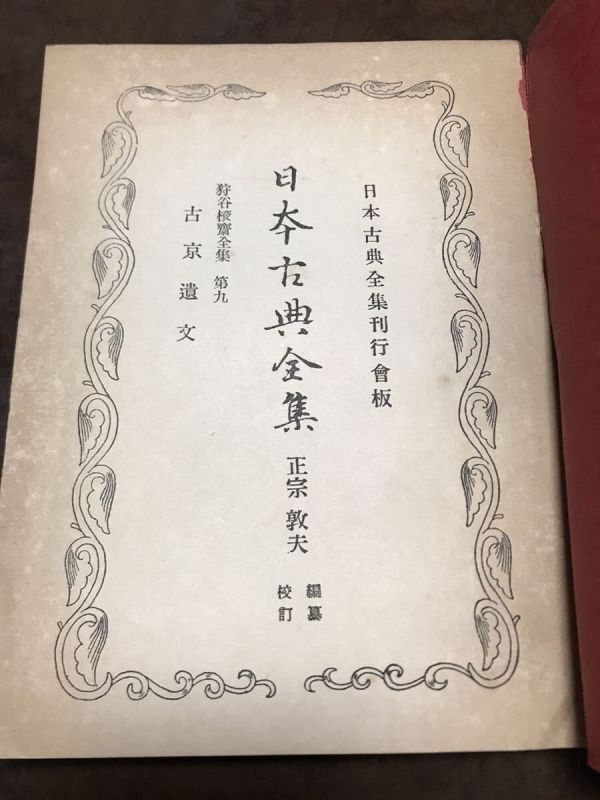 日本古典全集刊行會板
日本古典全集 正宗敦夫 編纂
校訂
狩谷棭齋全集 第九
古京遺文